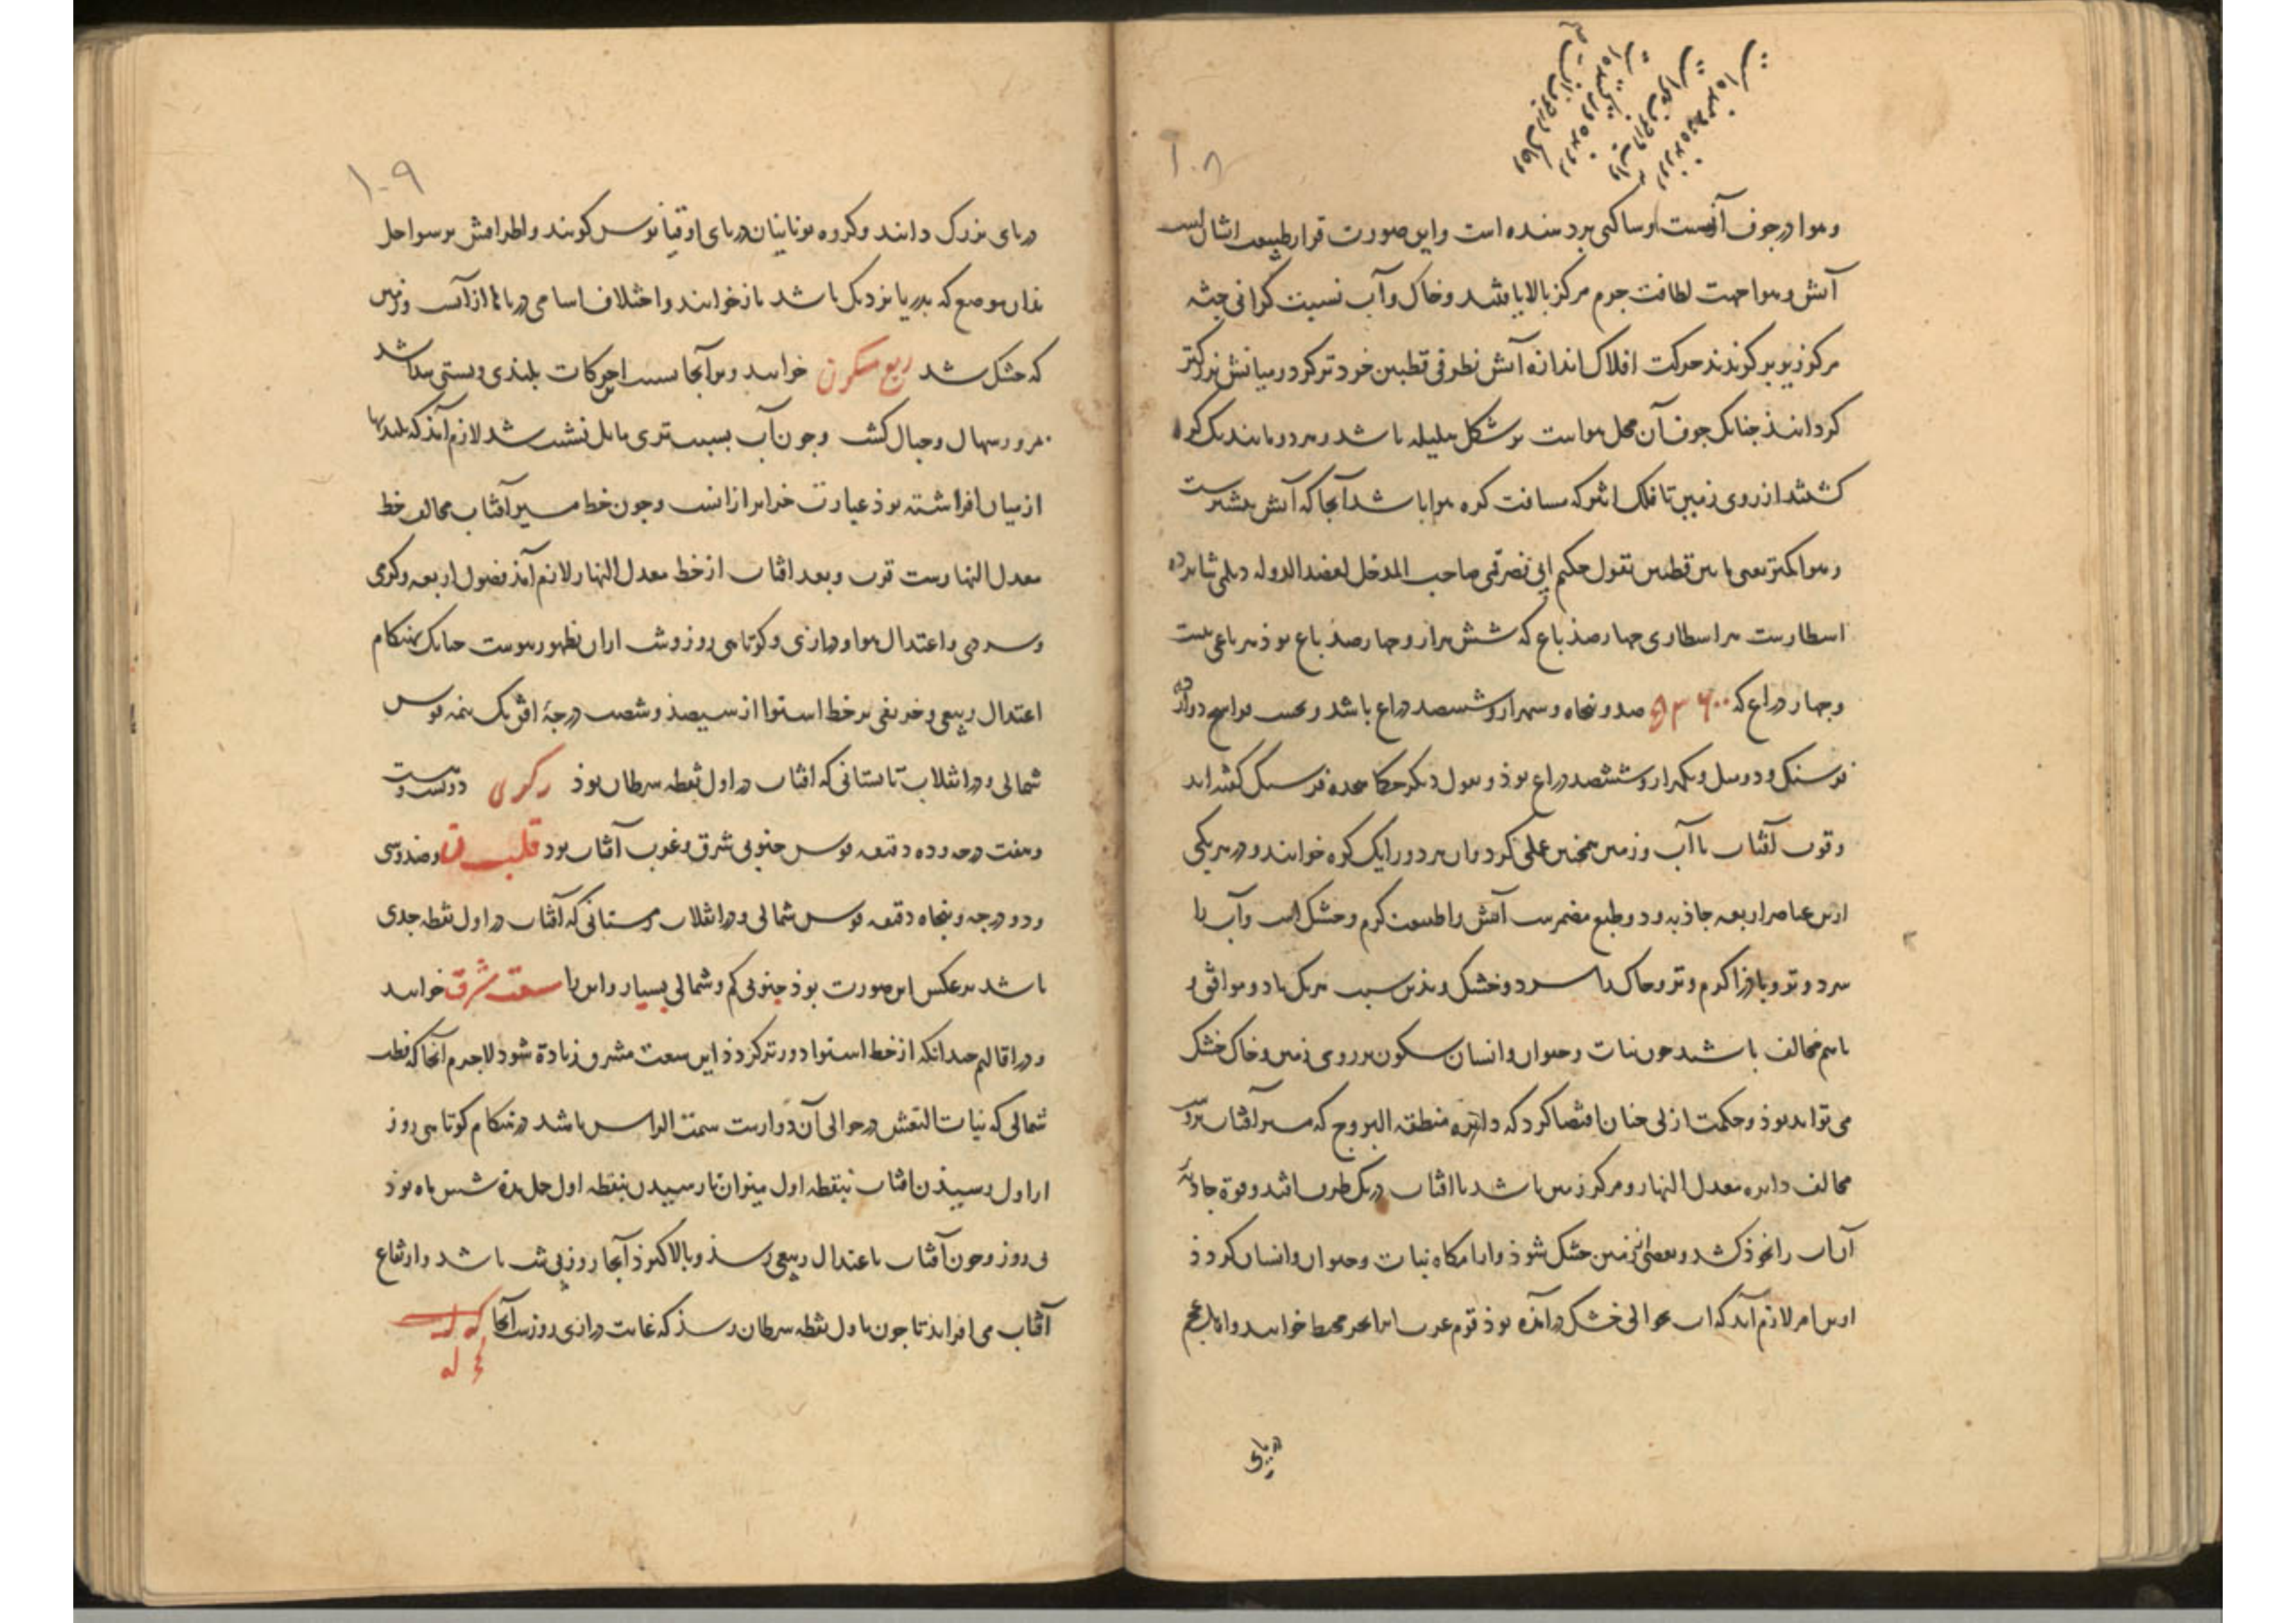 ۱۰۸
وهوا در جوف آنست وساکنی بر دمنده است واین صورت قرار طبیعت
آتش وهوا جهت لطافت جرم مرکز بالا یافتند وخاک وآب نسبت گرانی جثه
مرکز زیر برگزیدند حرکت افلاک اندازه آتش نظر فی قطبین خردتر کرد ومیانش بزرگتر
گردانید چنانک جوف آن محل هواست بر شکل هلیله باشد وهر دو مانند یک کره
کشند از روی زمین تا فلک اثیر که مسافت کره هوا باشد آنجا که آتش بیشترست
وهوا کمتر یعنی مابین قطبین بقول حکیم ابی نصر قمی صاحب المدخل لعضد الدوله دیلمی شانزده
اسطارست هر اسطاری چهارصد باع که شش هزار وچهارصد باع بود هر باعی بیست
وچهار ذراع که صد وپنجاه وسه هزار وششصد ذراع باشد وبحسب فراسخ دوازده
فرسنگ ودو میل ویکهزار وششصد ذراع بود وبقول دیگر حکما هجده فرسنگ گفته‌اند
وقرب آفتاب با آب وزمین همچنین عملی کرد وآن هر دو را یک کره خوانند ودر هر یکی
ازین عناصر اربعه جاذبه ودو طبع مضمرست آتش را طبیعت گرم وخشک است وآب را
سرد وتر وباد را گرم وتر وخاک را سرد وخشک وبدین سبب هر یک باد وموافق و
باهم مخالف باشند چون نبات وحیوان وانسان سکون بر روی زمین وخاک خشک
می‌تواند بود وحکمت ازلی چنان اقتضا کرد که دایره منطقه البروج که مسیر آفتاب بروست
مخالف دایره معدل النهار ومرکز زمین باشد تا آفتاب در یک طرف افتد وقوة جاذبه
آن آب را بخود کشد وبعضی از زمین خشک شود وآرامگاه نبات وحیوان وانسان گردد
ازین امر لازم آید که آب بحوالی خشک درآمده بود قوم عرب انرا بحر محیط خوانند واهل عجم
۱۰۹
دریای بزرگ دانند وگروه یونانیان دریای اوقیانوس گویند واطرافش بر سواحل
بدان موضع که بدریا نزدیک باشد باز خوانند واختلاف اسامی دریاها از آنست وزمین
که خشک شد ربع مسکون خوانند وبر آنجا بسبب حرکات بلندی وپستی پیدا شد
وجبال گشت وچون آب بسبب تری مایل نشیب شد لازم آمد که بلندیها
از میان افراشته بود عبارت جزایر از آنست وچون خط مسیر آفتاب مخالف خط
معدل النهارست قرب وبعد آفتاب از خط معدل النهار لازم آمد فصول اربعه وگرمی
وسردی واعتدال هوا ودرازی وکوتاهی روز وشب از آن بظهور پیوست چنانک بهنگام
اعتدال ربیعی وخریفی بر خط استوا از سیصد وشصت درجهٔ افق یک نیمه قوس
شمالی ودر انقلاب تابستانی که آفتاب در اول نقطه سرطان بود دویست و
وهفت درجه وده دقیقه قوس جنوبی شرق وغرب آفتاب بود وصد وسی
ودو درجه وپنجاه دقیقه قوس شمالی ودر انقلاب زمستانی که آفتاب در اول نقطه جدی
باشد برعکس این صورت بود جنوبی کم وشمالی بسیار واین را سعت مشرق خوانند
ودر اقالیم چندانکه از خط استوا دورتر گردد این سعت مشرق زیادة شود لاجرم آنجا که قطب
شمالی که بنات النعش در حوالی آن دوارست سمت الراس باشد در هنگام کوتاهی روز
از اول رسیدن آفتاب بنقطه اول میزان تا رسیدن بنقطه اول حمل مدة شش ماه بود
بی روز وچون آفتاب باعتدال ربیعی رسد وبالا گیرد آنجا روز بی شب باشد وارتفاع
آفتاب می‌افزاید تا چون باول نقطه سرطان رسد که غایت درازی روزست آنجا